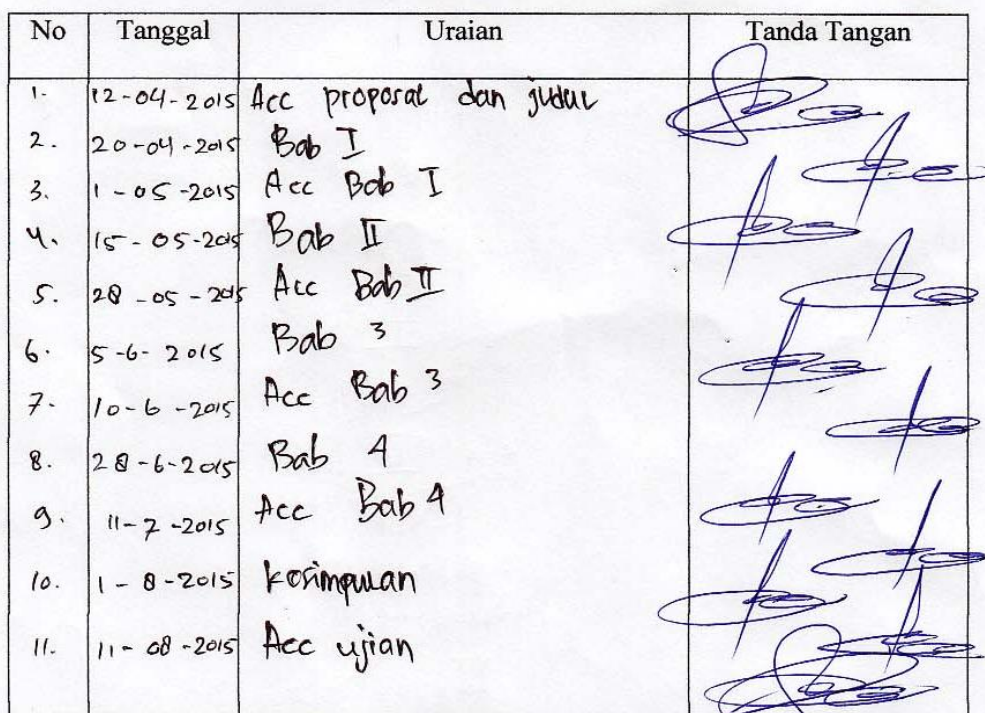 No Tanggal Uraian Tanda Tangan
1. 12-04-2015 Acc proposal dan judul
2. 20-04-2015 Bab I
3. 1-05-2015 Acc Bab I
4. 15-05-2015 Bab II
5. 28-05-2015 Acc Bab II
6. 5-6-2015 Bab 3
7. 10-6-2015 Acc Bab 3
8. 28-6-2015 Bab 4
9. 11-7-2015 Acc Bab 4
10. 1-8-2015 kesimpulan
11. 11-08-2015 Acc ujian